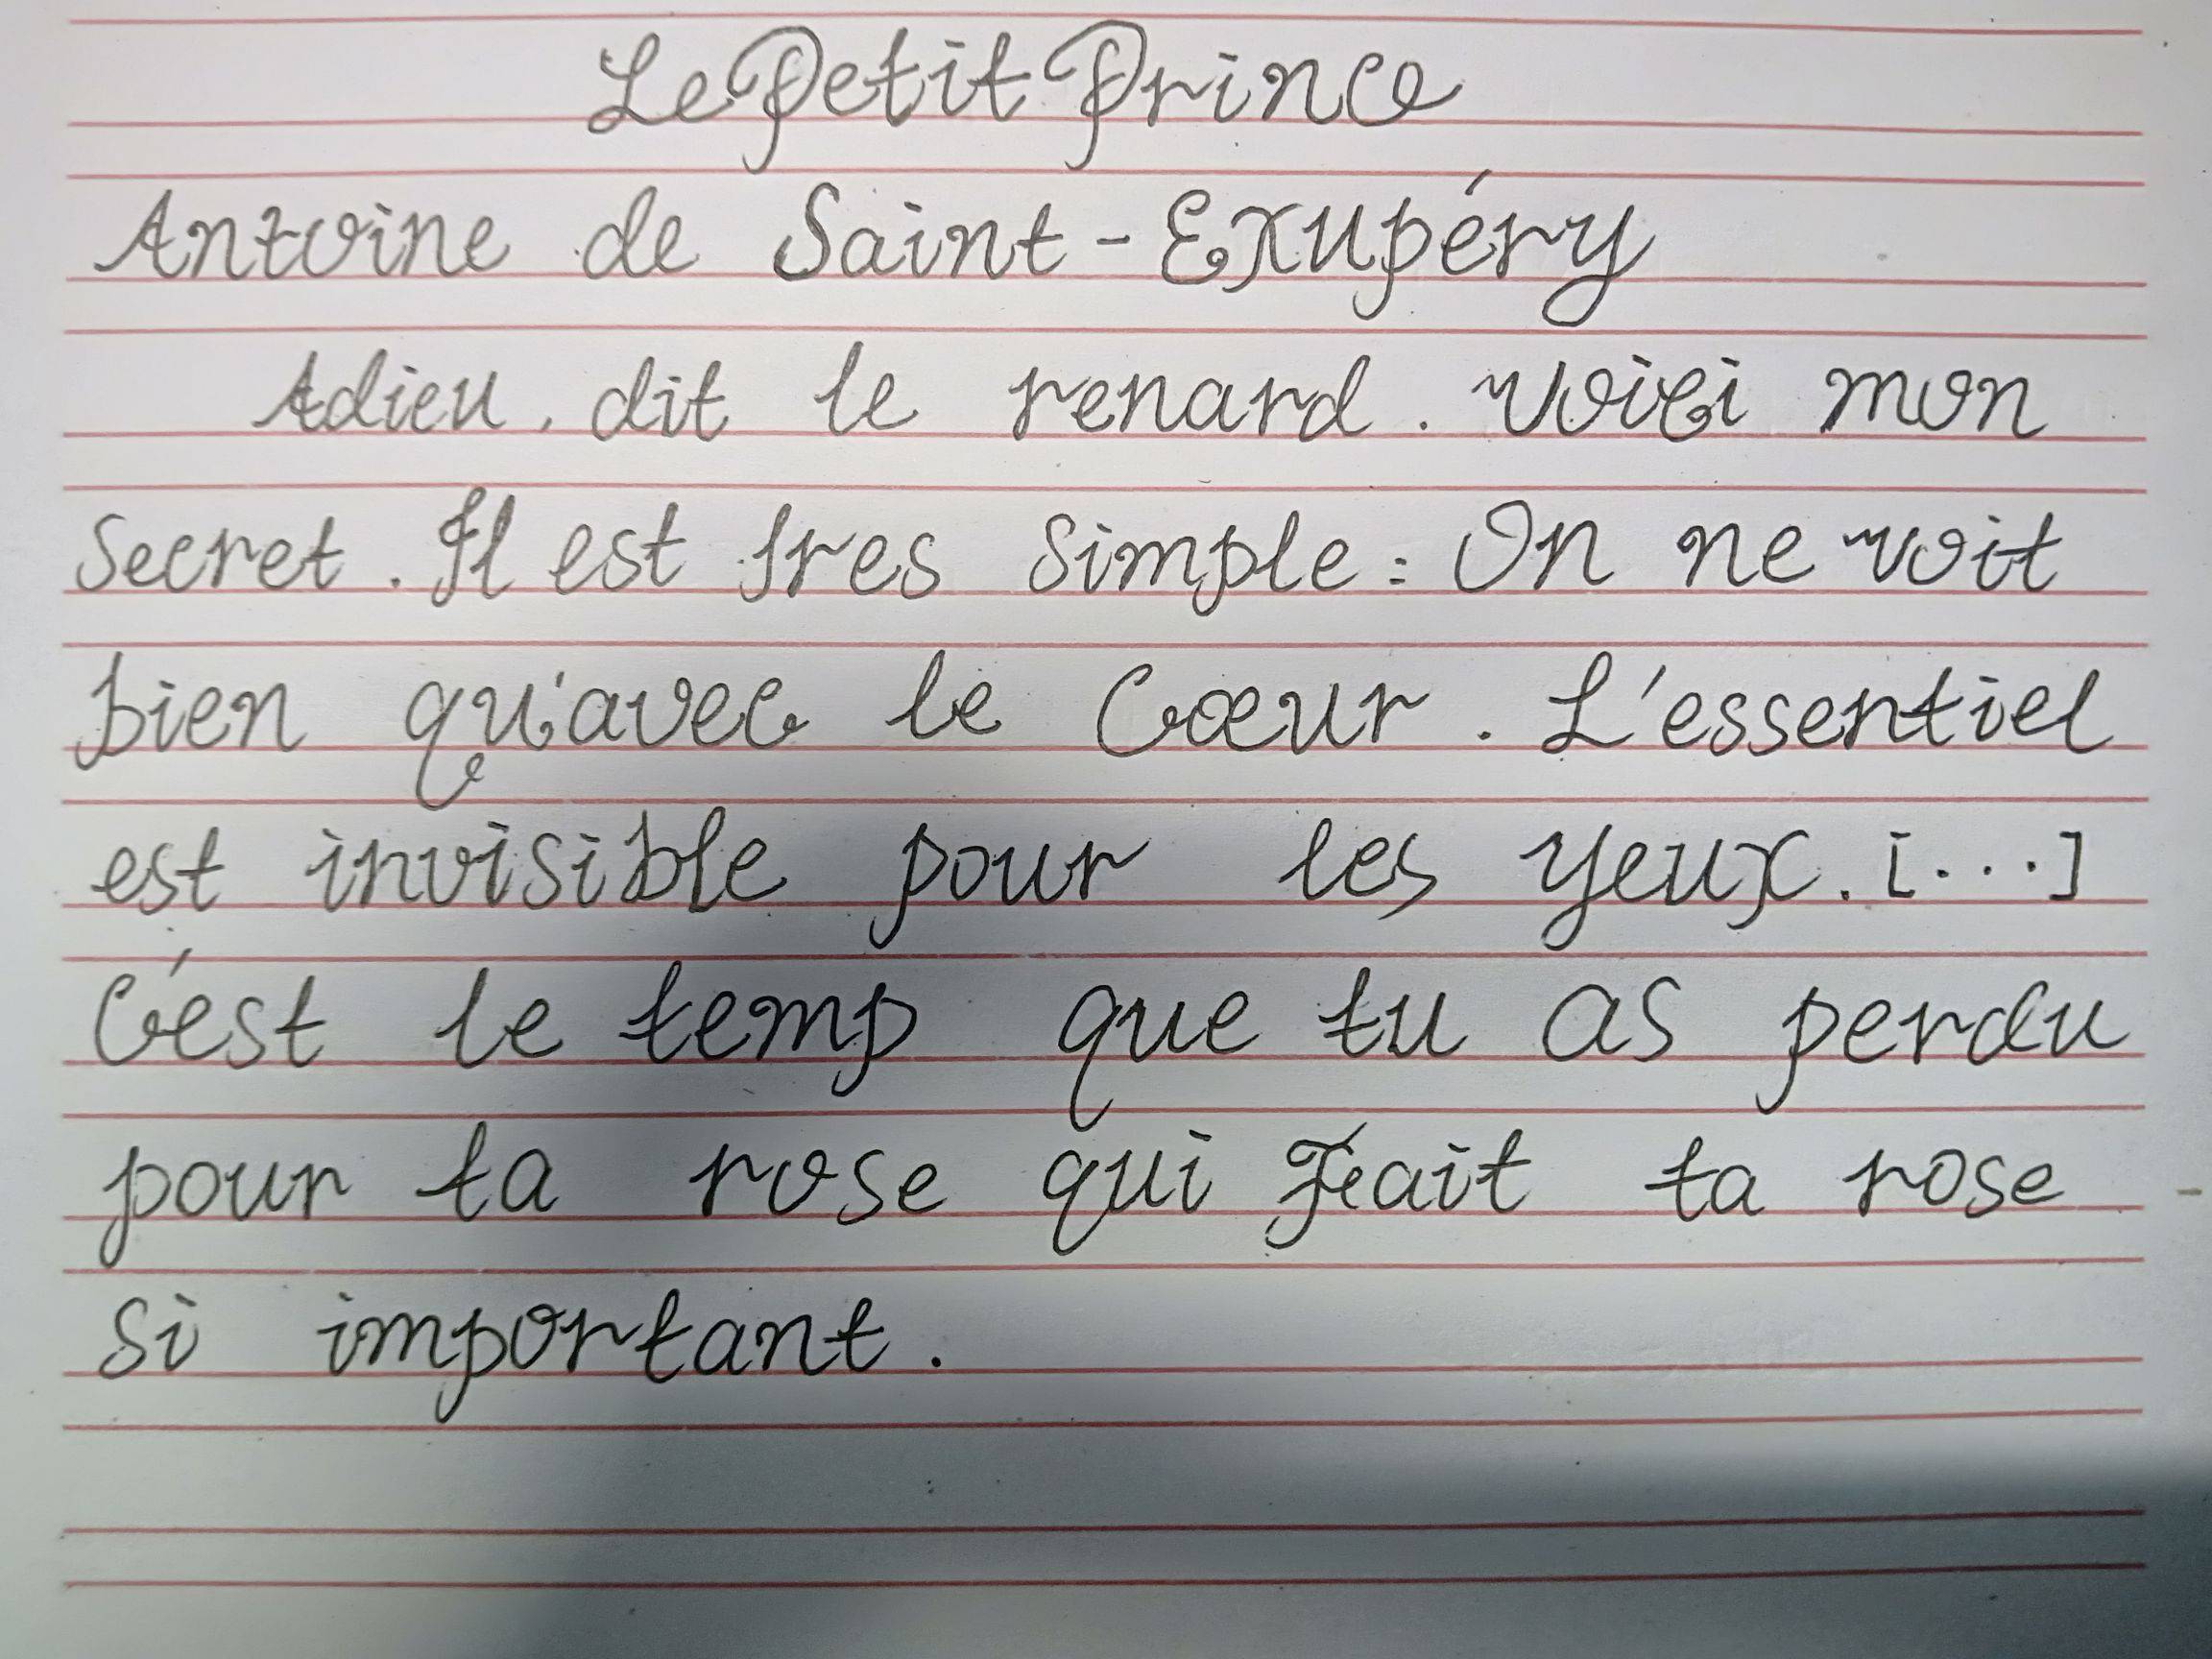 Le Petit Prince
Antoine de Saint-Exupéry
Adieu, dit le renard. Voici mon
secret. Il est tres simple: On ne voit
bien qu'avec le Cœur. L'essentiel
est invisible pour les yeux. [...]
C'est le temp que tu as perdu
pour ta rose qui fait ta rose
si important.